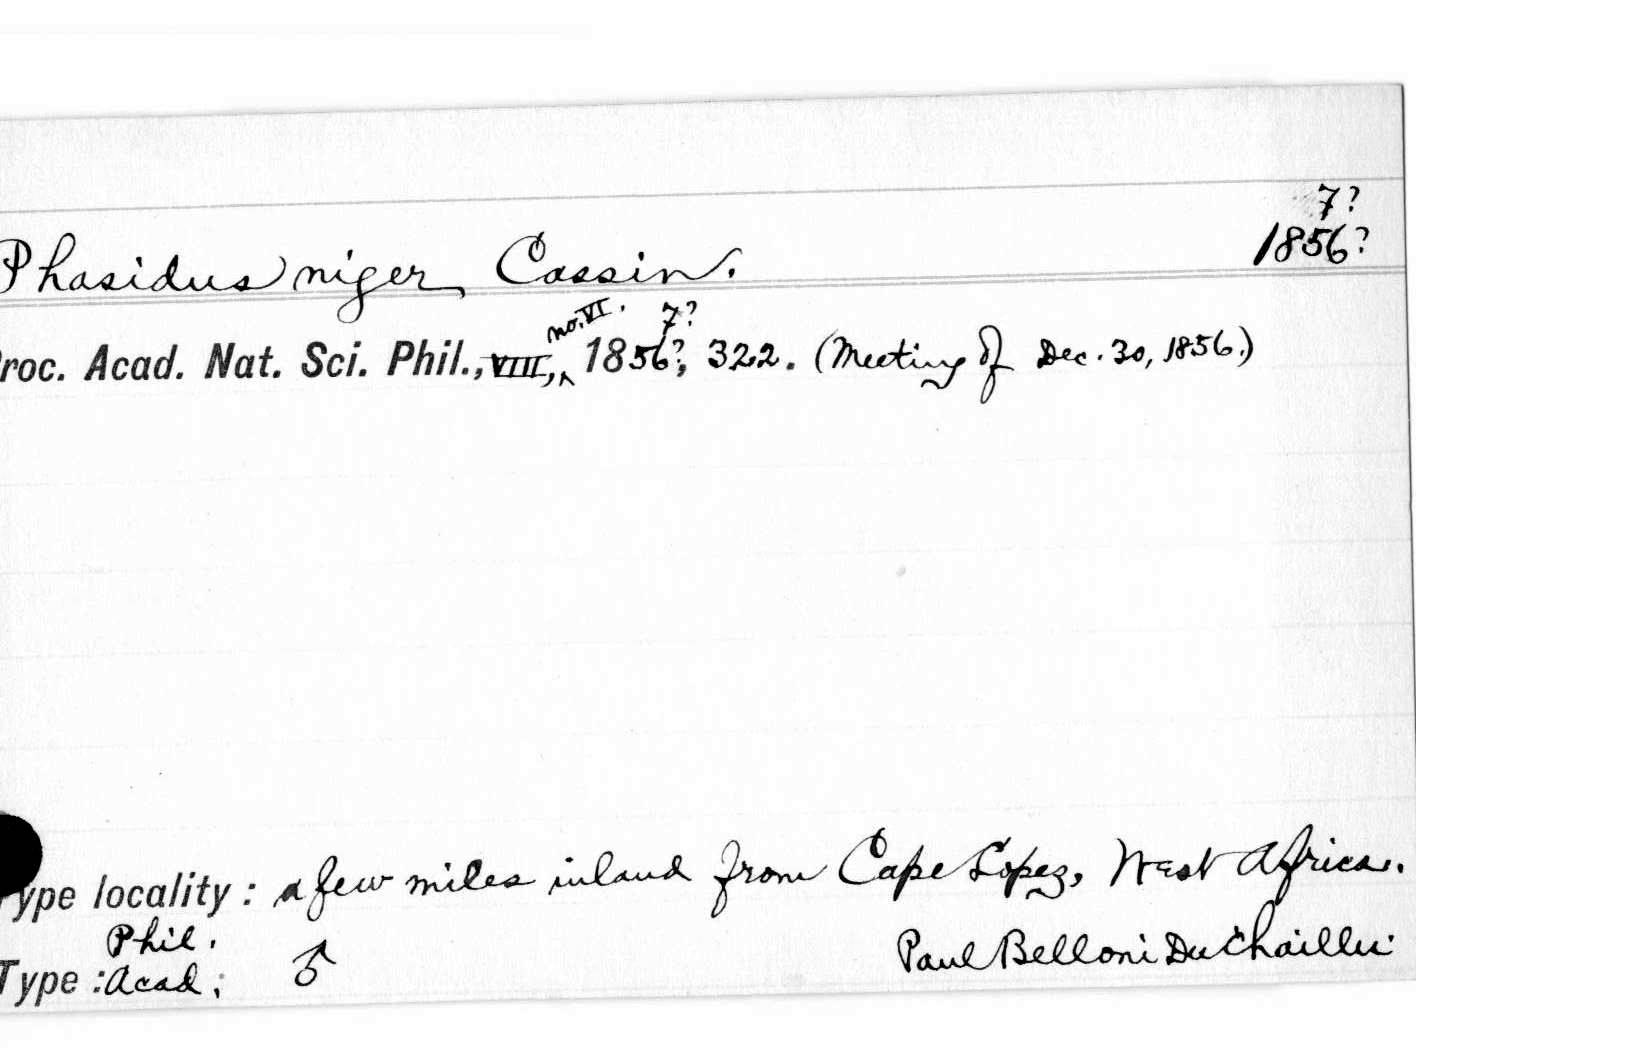 7?
1856?
Phasidus niger, Cassin.
no. VI. 7?
roc. Acad. Nat. Sci. Phil., VIII,‸ 1856?, 322. (Meeting of Dec. 30, 1856.)
Type locality: a few miles inland from Cape Lopez, West Africa.
Phil.
Type: Acad; ♂ Paul Belloni Du Chaillu